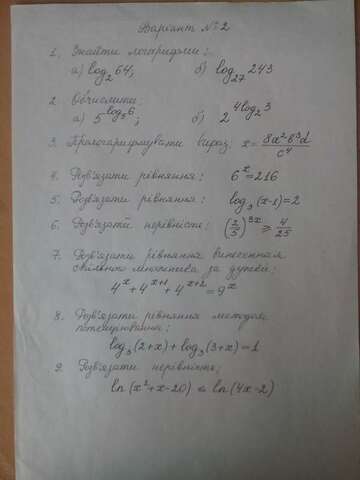 Варіант №2
1. Знайти логарифми:
а) log₂ 64; б) log₂₇ 243
2. Обчислити:
а) 5^(log₅ 6); б) 2^(4log₂ 3)
3. Прологарифмувати вираз: x = 8a²b³d / c⁴
4. Розв'язати рівняння: 6^x = 216
5. Розв'язати рівняння: log₃ (x-1) = 2
6. Розв'язати нерівність: (2/5)^(3x) ≥ 4/25
7. Розв'язати рівняння винесенням
спільного множника за дужки:
4^x + 4^(x+1) + 4^(x+2) = 9^x
8. Розв'язати рівняння методом
потенціювання:
log₃ (2+x) + log₃ (3+x) = 1
9. Розв'язати нерівність:
ln (x²+x-20) < ln (4x-2)